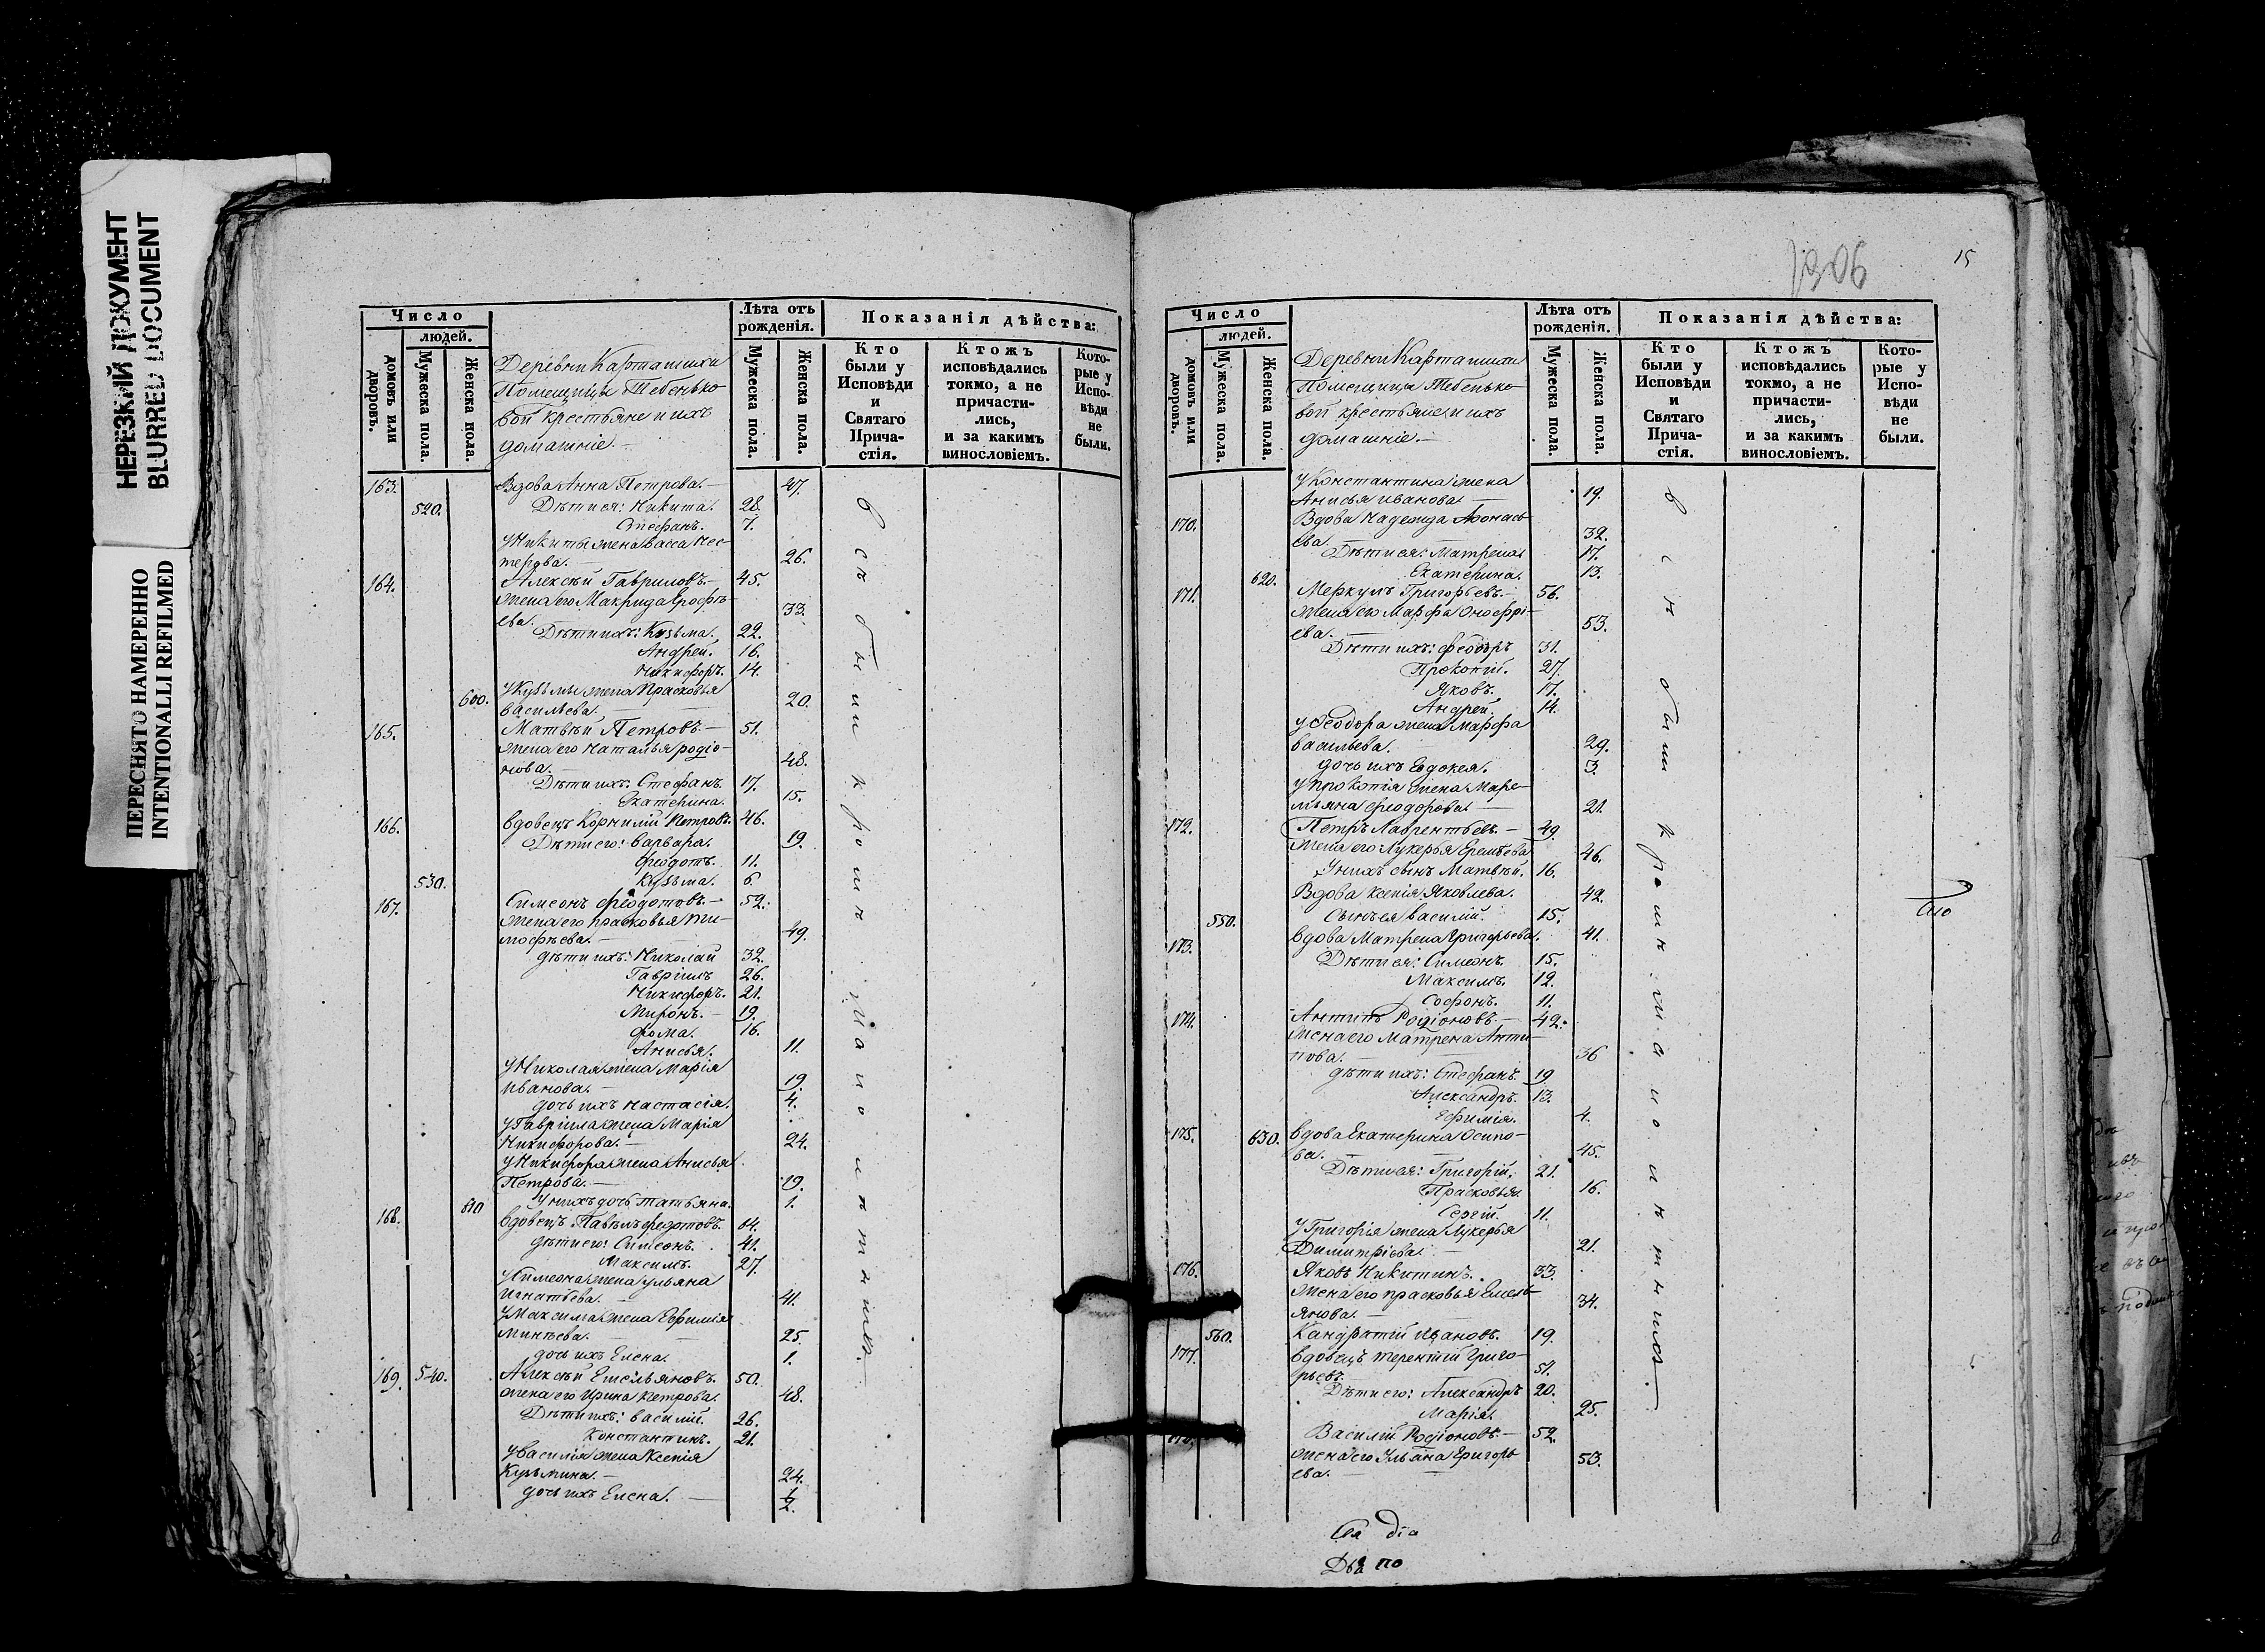 НЕРЕЗКИЙ ДОКУМЕНТ
BLURRED DOCUMENT
ПЕРЕСНЯТО НАМЕРЕННО
INTENTIONALLI REFILMED
Число
людей.
домовъ или дворовъ.
Мужеска пола.
Женска пола.
Деревни Карташихи
Помещицы Тебенько
вой крестьяне и ихъ
домашніе.
Лѣта отъ
рожденія.
Мужеска пола.
Женска пола.
Показанія дѣйства:
Кто
были у
Исповѣди
и
Святаго
Прича-
стія.
Ктожъ
исповѣдались
токмо, а не
причасти-
лись,
и за какимъ
винословіемъ.
Кото-
рые у
Испо-
вѣди
не
были.
163. Вдова Анна Петрова. 47.
520. Дѣти ея: Никита. 28.
Стефанъ. 7.
У Никиты жена Васса Нес-
терова. 26.
164. Алексѣй Гавриловъ. 45.
жена его Макрида Ерофѣ-
ева. 33.
Дѣти ихъ: Кузьма. 22.
Андрей. 16.
Никифоръ. 14.
У Кузьмы жена Прасковья
600. Васильева. 20.
165. Матвѣй Петровъ. 51.
жена его Наталья Родіо-
нова. 48.
Дѣти ихъ: Стефанъ. 17.
Екатерина. 15.
166. Вдовецъ Корнилій Петровъ. 46.
Дѣти его: Варвара. 19.
Феодотъ. 11.
530. Кузьма. 6.
167. Симеонъ Феодотовъ. 52.
жена его Прасковья Ти-
мофѣева. 49.
дѣти ихъ: Николай 32.
Гавріилъ 26.
Никифоръ. 21.
Миронъ. 19.
Фома. 16.
Анисья. 11.
У Николая жена Марія
Иванова. 19.
дочь ихъ Настасія. 4.
У Гавріила жена Марія
Никифорова. 24.
У Никифора жена Анисья
Петрова. 19.
610 У нихъ дочь Татьяна. 1.
168. Вдовецъ Павелъ Федотовъ. 64.
дѣти его: Симеонъ. 41.
Максимъ. 27.
У Симеона жена Ульяна
Игнатьева. 41.
У Максима жена Евфимія
Минѣева. 25.
дочь ихъ Елена. 1.
169. 540. Алексѣй Емельяновъ. 50.
жена его Ирина Петрова. 48.
Дѣти ихъ: Василій. 26.
Константинъ. 21.
У Василія жена Ксенія
Кузьмина. 24.
дочь ихъ Елена. 1/2.
всѣ были кромѣ малолѣтныхъ.
1306
15
Число
людей.
домовъ или дворовъ.
Мужеска пола.
Женска пола.
Деревни Карташихи
Помещицы Тебенько
вой крестьяне и ихъ
домашніе.
Лѣта отъ
рожденія.
Мужеска пола.
Женска пола.
Показанія дѣйства:
Кто
были у
Исповѣди
и
Святаго
Прича-
стія.
Ктожъ
исповѣдались
токмо, а не
причасти-
лись,
и за какимъ
винословіемъ.
Кото-
рые у
Испо-
вѣди
не
были.
У Константина жена
Анисья Иванова. 19.
170. Вдова Надежда Афонась
ева. 32.
Дѣти ея: Матрена. 17.
620. Екатерина. 13.
171. Меркулъ Григорьевъ. 56.
жена его Марфа Онофрі-
ева. 53.
Дѣти ихъ: Феодоръ 31.
Прокопій. 27.
Яковъ. 17.
Андрей. 14.
У Феодора жена Марфа
Васильева. 29.
дочь ихъ Евдокея. 3.
У Прокопія жена Маре-
мьяна Феодорова. 21.
172. Петръ Лаврентьевъ. 49.
жена его Лукерья Еремѣева 46.
У нихъ сынъ Матвѣй. 16.
Вдова Ксенія Яковлева. 42.
550. Сынъ ея Василій. 15.
173. Вдова Матрена Григорьева. 41.
Дѣти ея: Симеонъ. 15.
Максимъ. 12.
Софонъ. 11.
174. Антипъ Родіоновъ. 42.
жена его Матрена Анти-
пова. 36
дѣти ихъ: Стефанъ. 19.
Александръ. 13.
Ефимія. 4.
175. 630. Вдова Екатерина Осипо-
ва. 45.
Дѣти ея: Григорій. 21.
Прасковья. 16.
Сергій. 11.
У Григорія жена Лукерья
Димитріева. 21.
176. Яковъ Никитинъ. 33.
жена его Прасковья Емель-
янова. 34.
560. Кандратій Ивановъ. 19.
177. Вдовецъ Терентій Григо-
рьевъ. 51.
Дѣти его: Александръ 20.
Марія. 25.
Василій Родіоновъ. 52.
жена его Ульяна Григорь
ева. 53.
всѣ были кромѣ малолѣтныхъ.